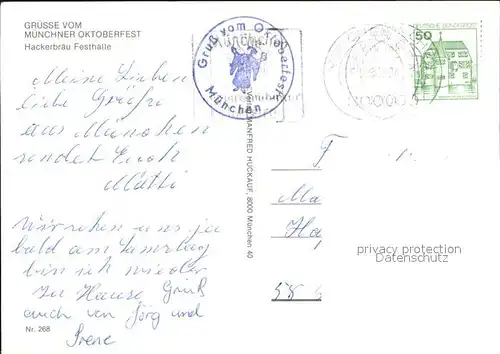 GRÜSSE VOM
MÜNCHNER OKTOBERFEST
Hackerbräu Festhalle
Gruß vom Oktoberfest
München
8000
DEUTSCHE BUNDESPOST
50
Meine Lieben
liebe Grüße
aus München
sendet Euch
Mutti
Wir sehen uns ja
bald am Samstag
bin ich wieder
zu Hause Gruß
auch von Jörg und
Irene
MANFRED HUCKAUF, 8000 München 40
T
Ma
Ha
58
privacy protection
Datenschutz
Nr. 268